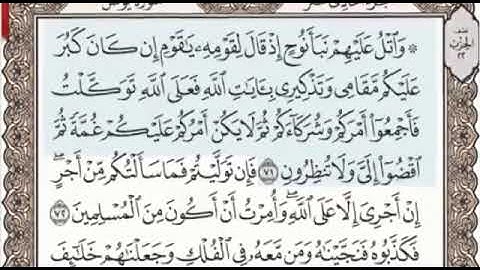 سورة يونس
۞ وَٱتۡلُ عَلَيۡهِمۡ نَبَأَ نُوحٍ إِذۡ قَالَ لِقَوۡمِهِۦ يَٰقَوۡمِ إِن كَانَ كَبُرَ
عَلَيۡكُم مَّقَامِي وَتَذۡكِيرِي بِـَٔايَٰتِ ٱللَّهِ فَعَلَى ٱللَّهِ تَوَكَّلۡتُ
فَأَجۡمِعُوٓاْ أَمۡرَكُمۡ وَشُرَكَآءَكُمۡ ثُمَّ لَا يَكُنۡ أَمۡرُكُمۡ عَلَيۡكُمۡ غُمَّةٗ ثُمَّ
ٱقۡضُوٓاْ إِلَيَّ وَلَا تُنظِرُونِ ٧١ فَإِن تَوَلَّيۡتُمۡ فَمَا سَأَلۡتُكُم مِّنۡ أَجۡرٍۖ
إِنۡ أَجۡرِيَ إِلَّا عَلَى ٱللَّهِۖ وَأُمِرۡتُ أَنۡ أَكُونَ مِنَ ٱلۡمُسۡلِمِينَ ٧٢
فَكَذَّبُوهُ فَنَجَّيۡنَٰهُ وَمَن مَّعَهُۥ فِي ٱلۡفُلۡكِ وَجَعَلۡنَٰهُمۡ خَلَٰٓئِفَ